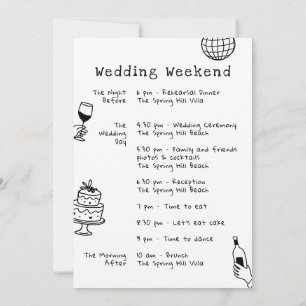 Wedding Weekend
The Night 6 pm - Rehearsal Dinner
Before The Spring Hill Villa
The 4.30 pm - Wedding Ceremony
Wedding The Spring Hill Beach
Day
5.30 pm - Family and friends
photos & cocktails
The Spring Hill Beach
6.30 pm - Reception
The Spring Hill Beach
7 pm - Time to eat
8.30 pm - Let's eat cake
9 pm - Time to dance
The Morning 10 am - Brunch
After The Spring Hill Villa